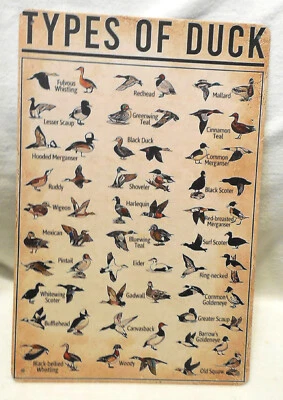 TYPES OF DUCK
Fulvous
Whistling
Redhead
Mallard
Lesser Scaup
Greenwing
Teal
Cinnamon
Teal
Hooded Merganser
Black Duck
Common
Merganser
Ruddy
Shoveler
Black Scoter
Wigeon
Harlequin
Red-breasted
Merganser
Mexican
Bluewing
Teal
Surf Scoter
Pintail
Eider
Ring-necked
Whitewing
Scoter
Gadwall
Common
Goldeneye
Bufflehead
Canvasback
Greater Scaup
Barrow's
Goldeneye
Black-bellied
Whistling
Woody
Old Squaw